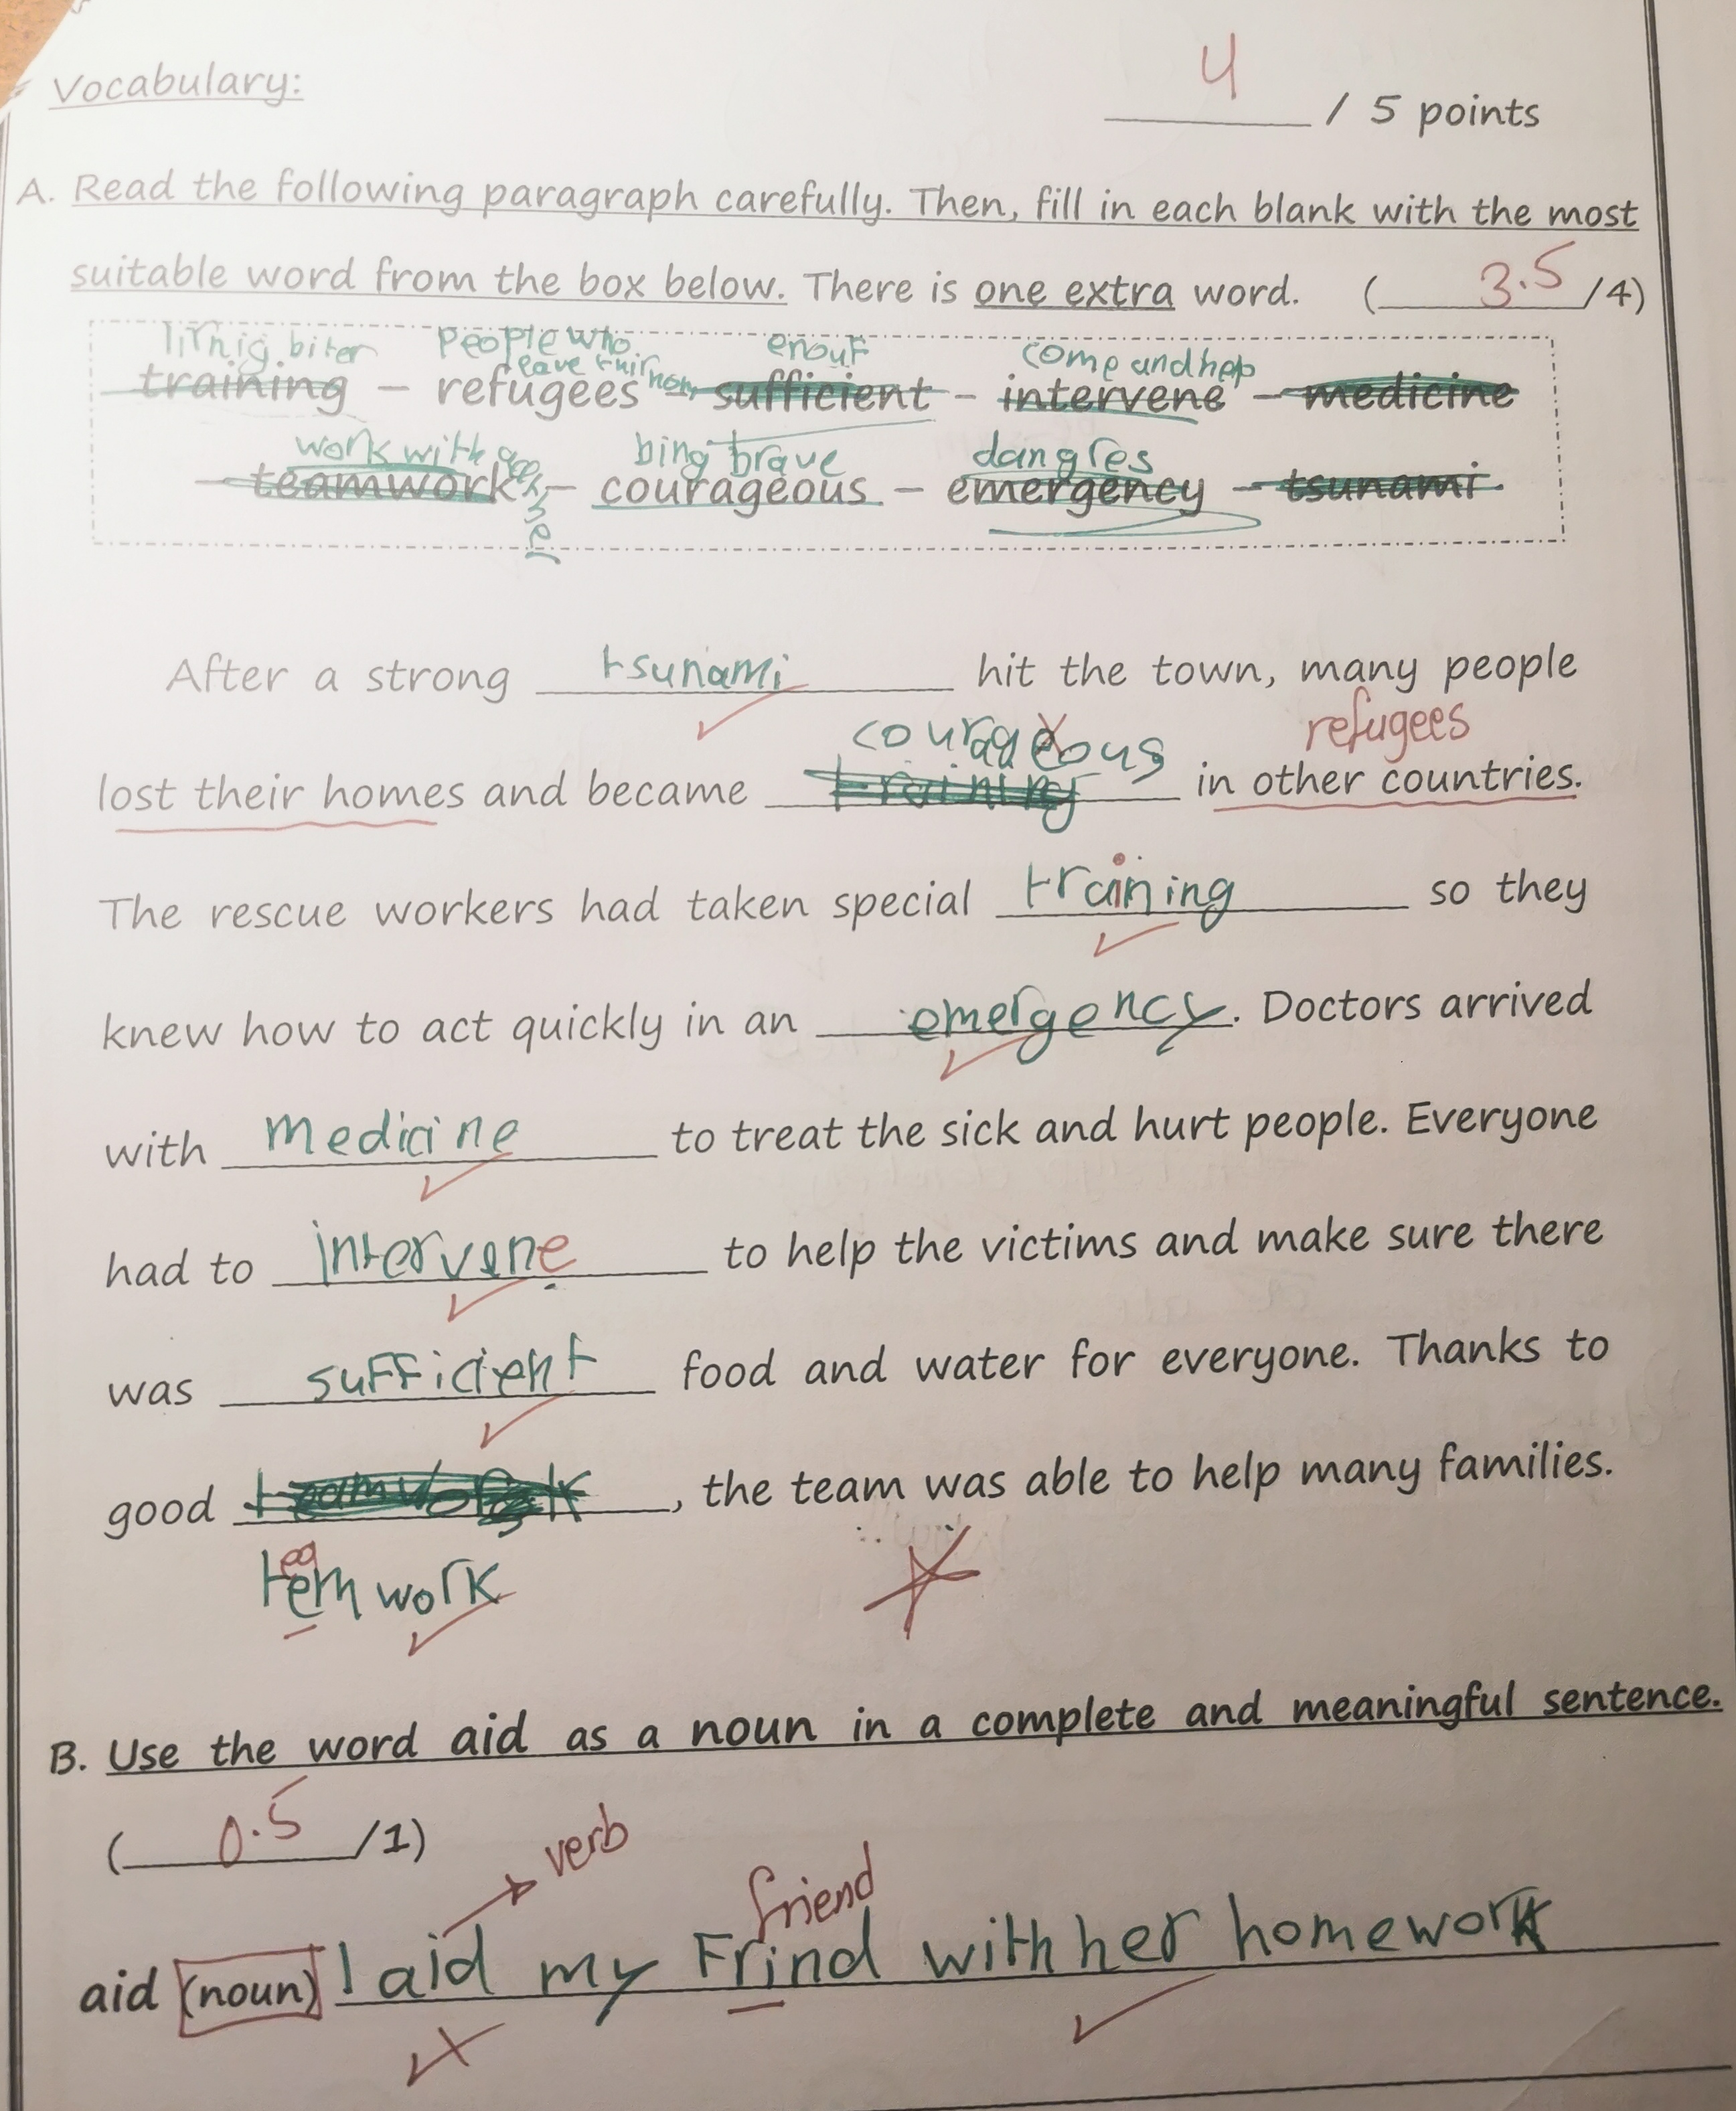 Vocabulary:
4
/ 5 points
A. Read the following paragraph carefully. Then, fill in each blank with the most
suitable word from the box below. There is one extra word. ( 3.5 /4)
lirnig biter people who enouf come and hep
leave thir hom
training – refugees – sufficient – intervene – medicine
work with bing brave dangres
teamwork – courageous – emergency – tsunami
After a strong tsunami hit the town, many people
courageous refugees
lost their homes and became training in other countries.
The rescue workers had taken special training so they
knew how to act quickly in an emergency. Doctors arrived
with medicine to treat the sick and hurt people. Everyone
had to intervene to help the victims and make sure there
was sufficient food and water for everyone. Thanks to
good teamwork, the team was able to help many families.
ea
temwork
B. Use the word aid as a noun in a complete and meaningful sentence.
( 0.5 /1)
verb
friend
aid (noun) I aid my Frind with her homework